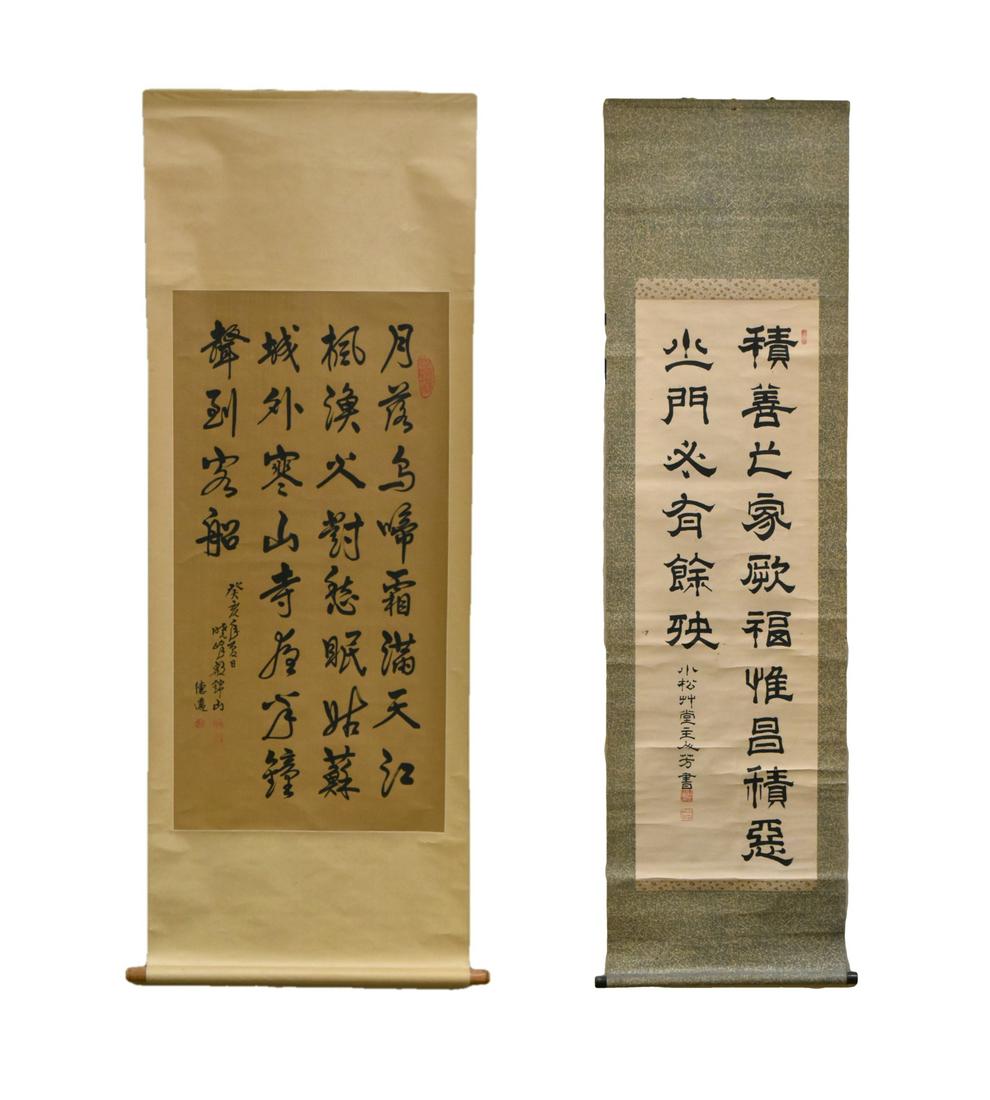 月落烏啼霜滿天江
楓漁火對愁眠姑蘇
城外寒山寺夜半鐘
聲到客船
癸亥年夏日
曉峰錦山
積善之家厥福惟昌積惡
之門必有餘殃
小松艸堂主芳書